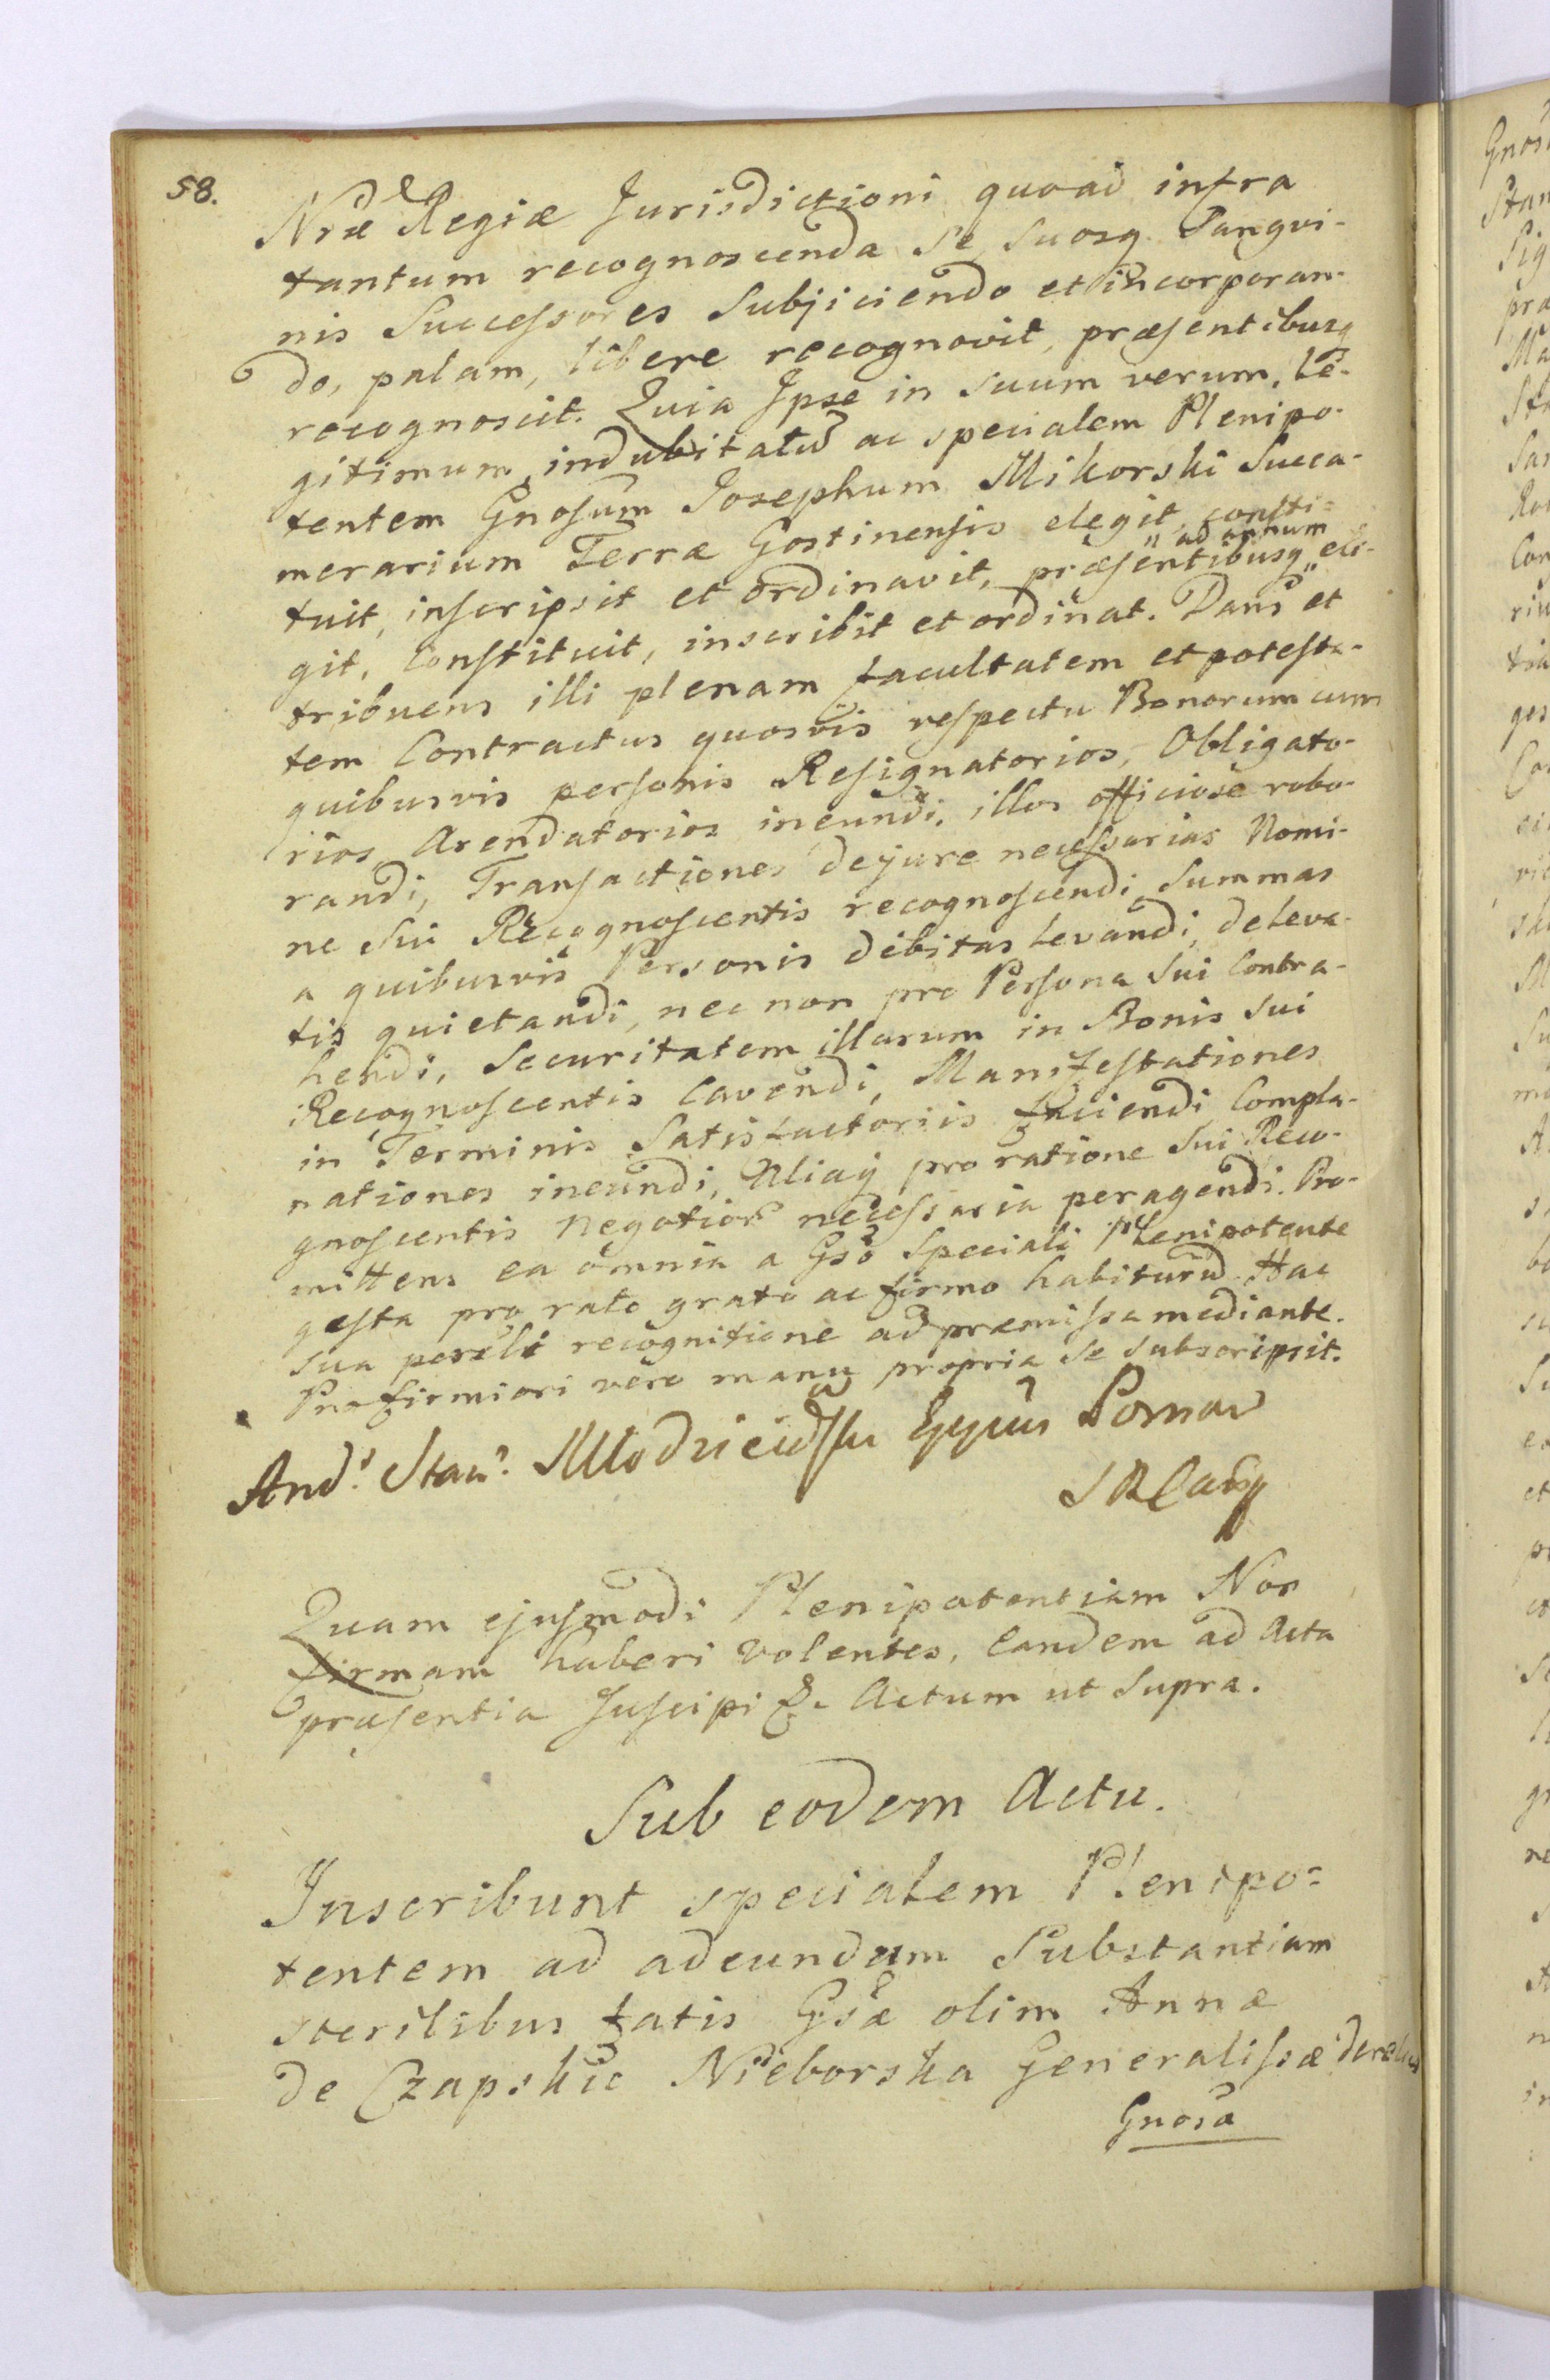 58.
Nræ Regiæ Jurisdictioni quoad infra
tantum recognoscenda Se, Suosq. Sangvi-
nis Successores Subjiciendo et incorporan-
do, palam, libere recognovit, præsentibusq
recognoscit. Quia Ipse in suum verum, le-
gitimum, indubitatū ac specialem Plenipo-
tentem Gnosum Josephum Mikorski Succa-
merarium Terræ Gostinensis elegit, consti-
tuit, inscripsit et ordinavit, præsentibusq " ad annum " eli-
git, Constituit, inscribit et ordinat. Dans et
tribuens illi plenam facultatem et potesta-
tem Contractus quosvis respectu Bonorum cum
quibusvis personis Resignatorios, Obligato-
rios, Arendatorios ineundi, illos officiose robo-
randi, Transactiones dejure necessarias Nomi-
ne Sui Recognoscentis recognoscendi, Summas
a quibusvis Personis debitas levandi, deleva-
tis quietandi, nec non pro Persona Sui Contra-
hendi, Securitatem illarum in Bonis Sui
Recognoscentis Cavendi, Manifestationes
in Terminis Satisfactoriis faciendi Compla-
nationes ineundi, Aliaq pro ratione Sui Reco-
gnoscentis Negotior necessaria peragendi. Pro-
mittens ea omnia a Gso Speciali Plenipotente
gesta pro rato grato ac firmo habiturū. Hac
sua persli recognitione ad præmissa mediante.
Pro firmiori vero manu propria se subscripsit.
And. Stan.
Quam ejusmodi Plenipotentiam Nos
firmam haberi Volentes, Eandem ad Acta
præsentia Suscipi &. Actum ut Supra.
Sub eodem Actu.
Inscribunt specialem Plenipo-
tentem ad adeundam Substantiam
sterilibus fatis Gsæ olim Annæ
de Czapskie Nieborska Generalissæ
Gnosa